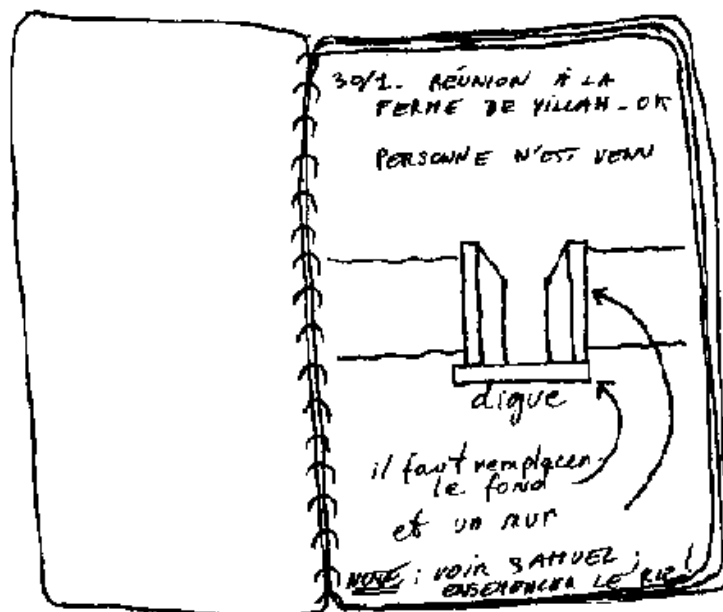 30/1. RÉUNION À LA
FERME DE YILLAH - OK
PERSONNE N'EST VENU
digue
il faut remplacer
le fond
et un mur
NOTE : VOIR SAMUEL ;
ENSEMENCER LE RIZ !